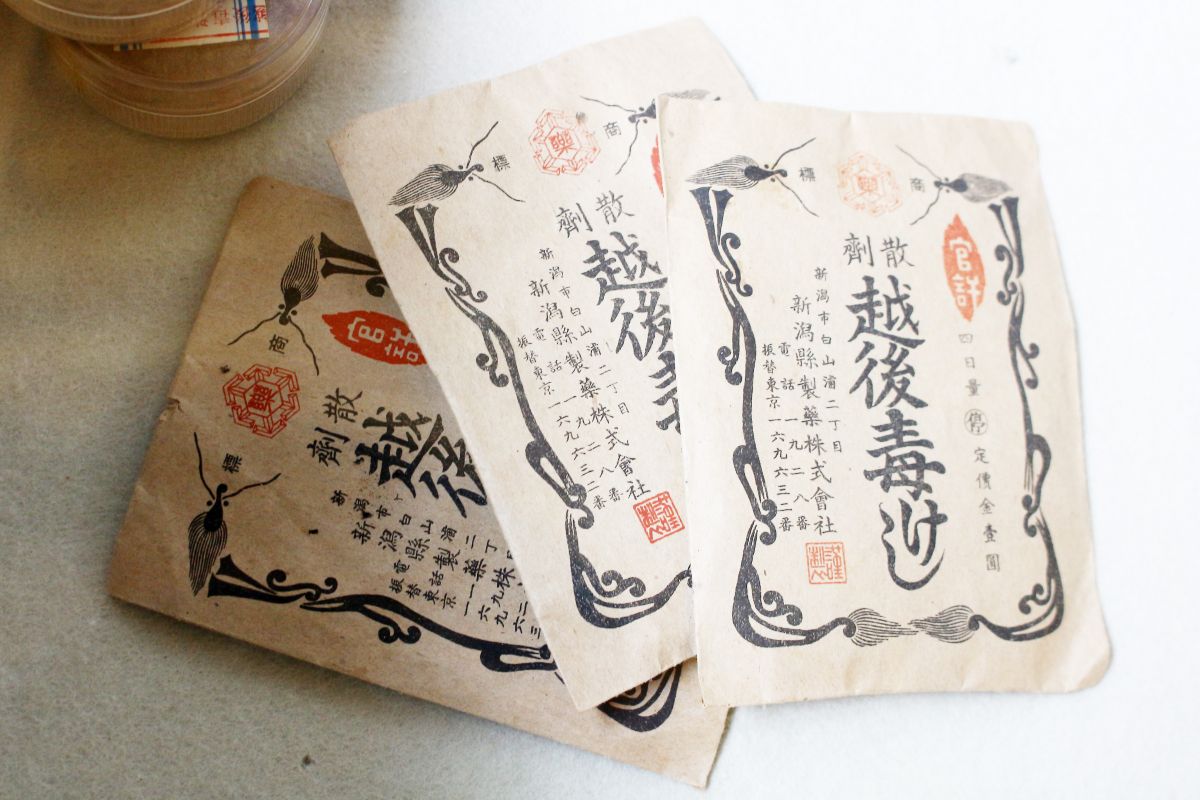 商標
官許
四日量 停 定價金壹圓
散劑
越後毒けし
新潟市白山浦二丁目
新潟縣製藥株式會社
電話 一九二八番
振替東京一六九六三二番
謹製
商標
散劑
越後毒
新潟市白山浦二丁目
新潟縣製藥株式會社
電話 一九二八番
振替東京一六九六三二番
謹製
商標
官許
散劑
越後
新潟市白山浦二丁
新潟縣製藥株
電話 一九二
振替東京一六九六三